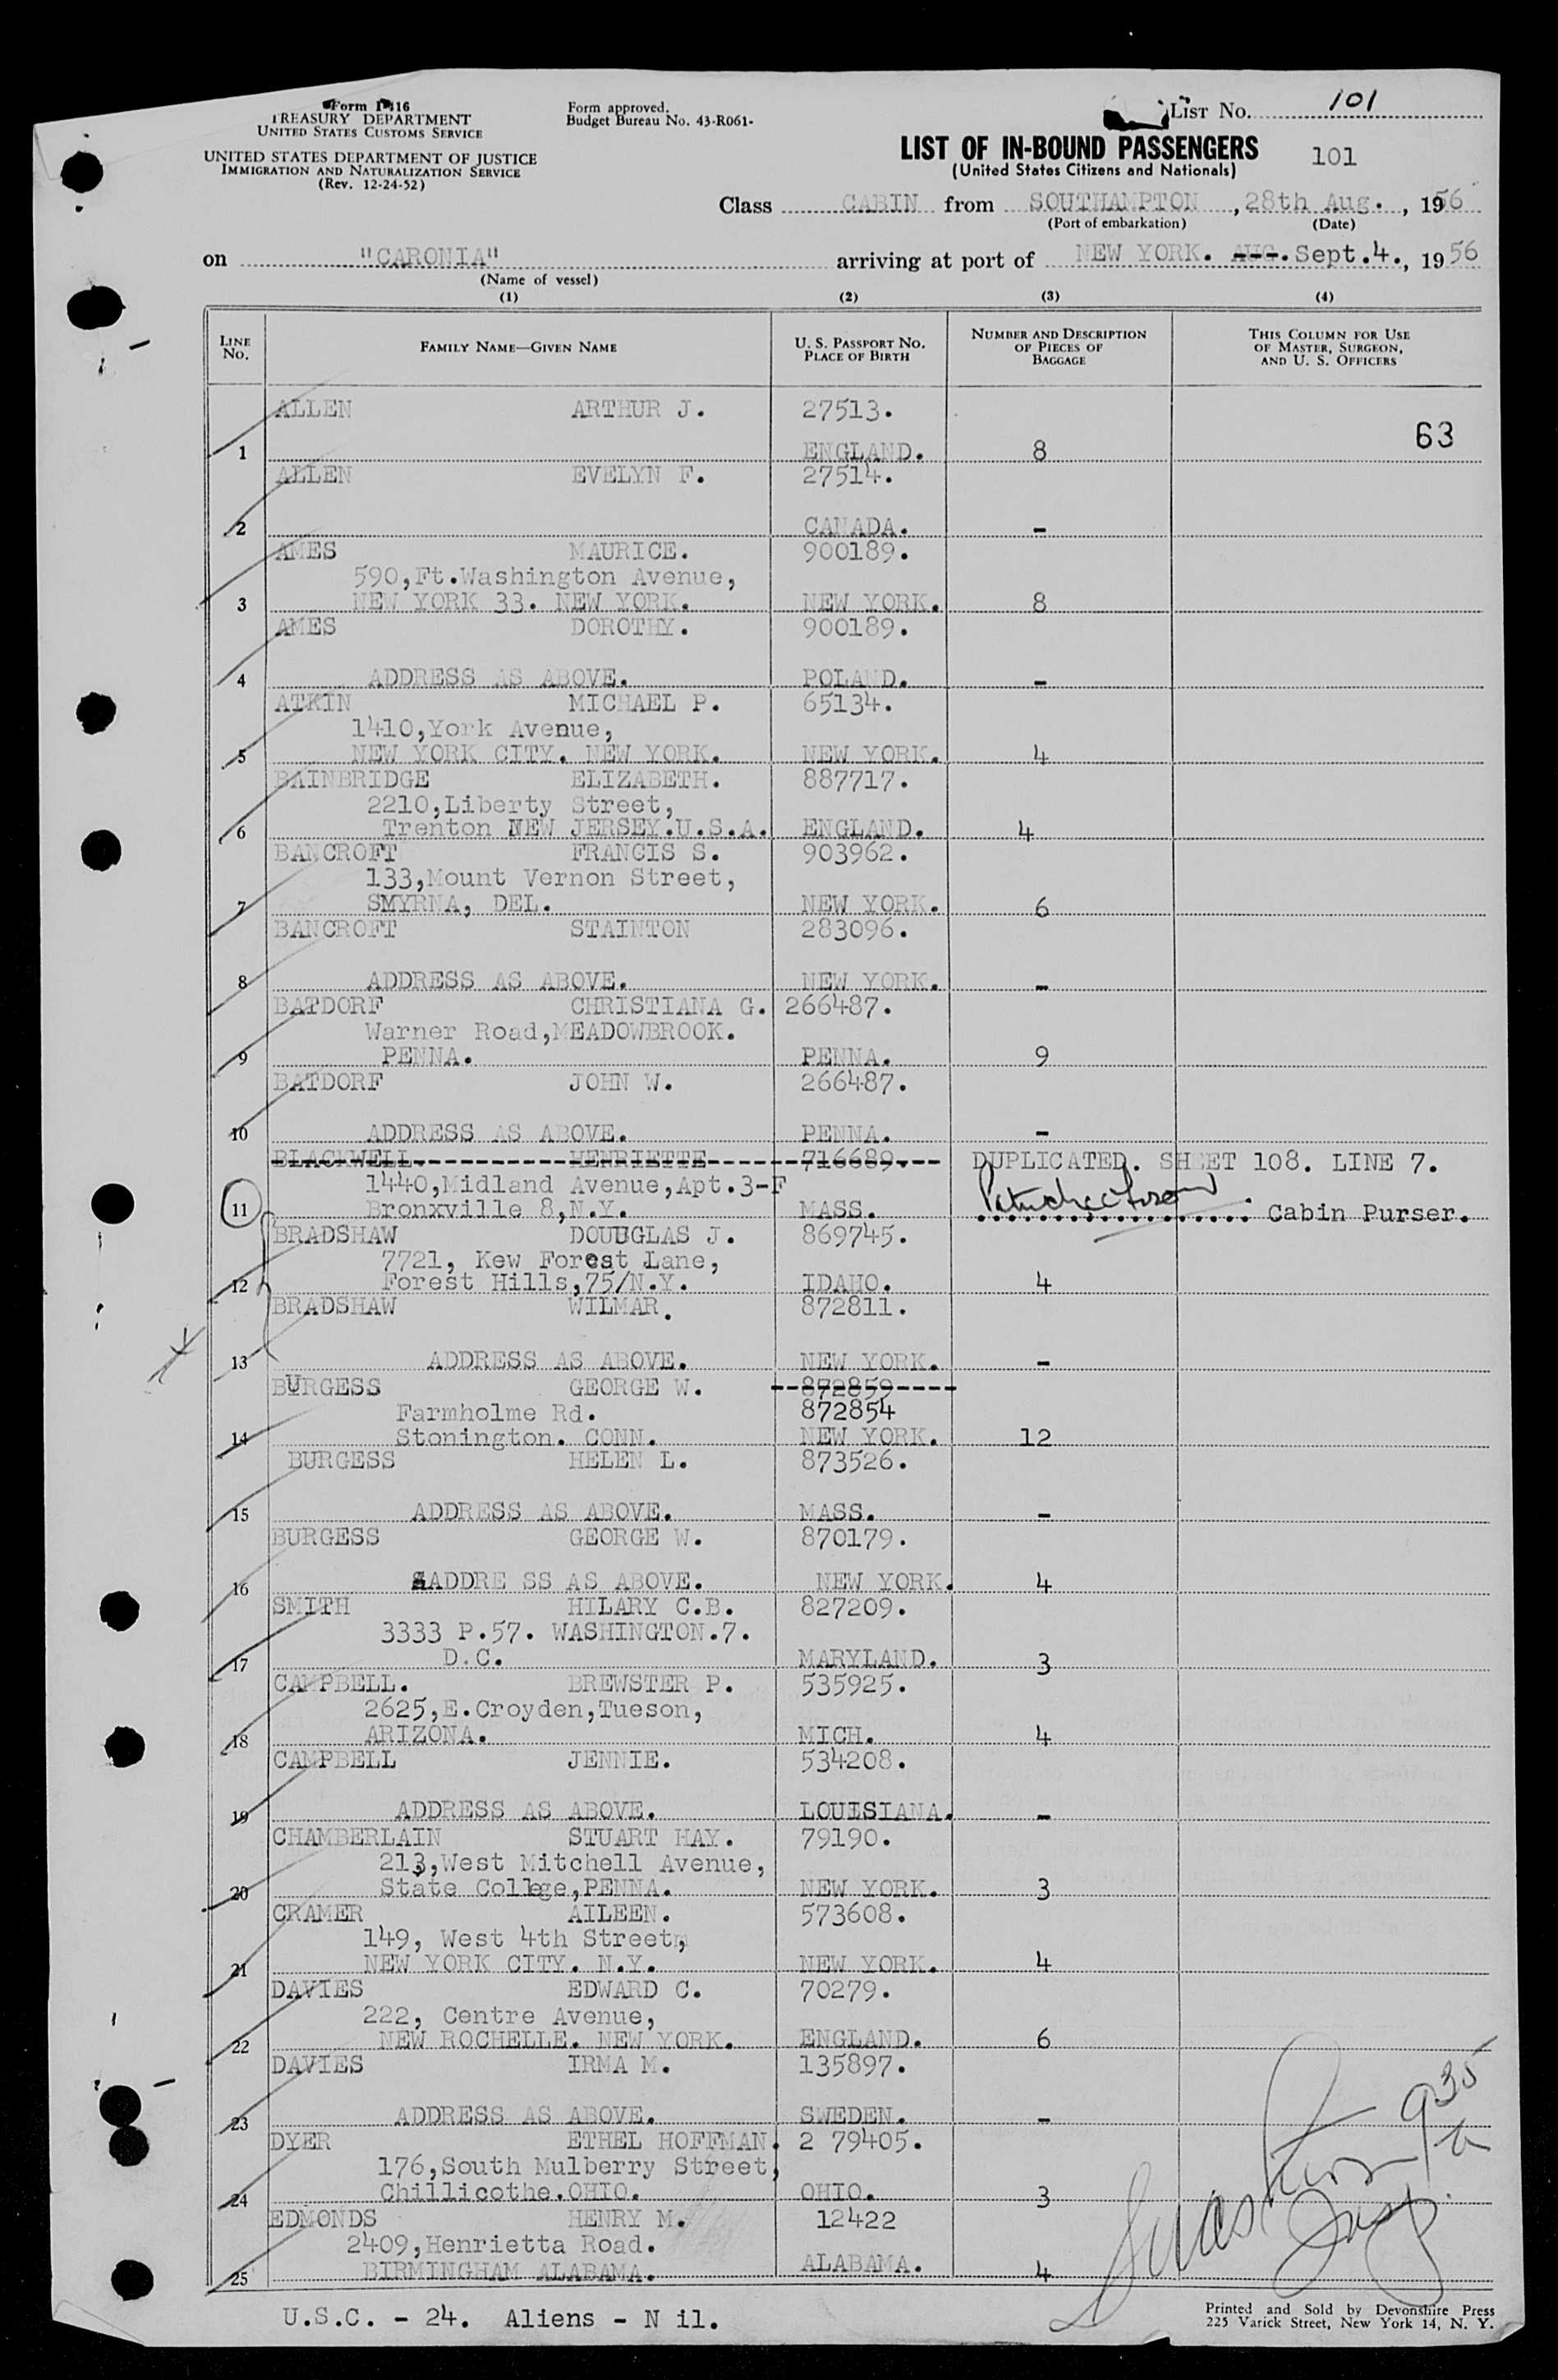 Form I-416
TREASURY DEPARTMENT
UNITED STATES CUSTOMS SERVICE
UNITED STATES DEPARTMENT OF JUSTICE
IMMIGRATION AND NATURALIZATION SERVICE
(Rev. 12-24-52)
Form approved.
Budget Bureau No. 43-R061-
LIST No. 101
LIST OF IN-BOUND PASSENGERS 101
(United States Citizens and Nationals)
Class CABIN from SOUTHAMPTON, 28th Aug., 1956
(Port of embarkation) (Date)
on "CARONIA" arriving at port of NEW YORK. AUG. Sept.4., 1956
(Name of vessel)
(1) (2) (3) (4)
LINE No. FAMILY NAME—GIVEN NAME U. S. PASSPORT NO. PLACE OF BIRTH NUMBER AND DESCRIPTION OF PIECES OF BAGGAGE THIS COLUMN FOR USE OF MASTER, SURGEON, AND U. S. OFFICERS
ALLEN ARTHUR J. 27513.
63
1 ENGLAND. 8
ALLEN EVELYN F. 27514.
2 CANADA. -
AMES MAURICE. 900189.
590,Ft.Washington Avenue,
3 NEW YORK 33. NEW YORK. NEW YORK. 8
AMES DOROTHY. 900189.
4 ADDRESS AS ABOVE. POLAND. -
ATKIN MICHAEL P. 65134.
1410,York Avenue,
5 NEW YORK CITY. NEW YORK. NEW YORK. 4
BAINBRIDGE ELIZABETH. 887717.
2210,Liberty Street,
6 Trenton NEW JERSEY.U.S.A. ENGLAND. 4
BANCROFT FRANCIS S. 903962.
133,Mount Vernon Street,
7 SMYRNA, DEL. NEW YORK. 6
BANCROFT STAINTON 283096.
8 ADDRESS AS ABOVE. NEW YORK. -
BATDORF CHRISTIANA G. 266487.
Warner Road,MEADOWBROOK.
9 PENNA. PENNA. 9
BATDORF JOHN W. 266487.
10 ADDRESS AS ABOVE. PENNA. -
BLACKWELL. HENRIETTE 716689. DUPLICATED. SHEET 108. LINE 7.
1440,Midland Avenue,Apt.3-F
11 Bronxville 8,N.Y. MASS. Cabin Purser.
BRADSHAW DOUUGLAS J. 869745.
7721, Kew Forest Lane,
12 Forest Hills,75/N.Y. IDAHO. 4
BRADSHAW WILMAR. 872811.
13 ADDRESS AS ABOVE. NEW YORK. -
BURGESS GEORGE W. 872859
Farmholme Rd. 872854
14 Stonington. CONN. NEW YORK. 12
BURGESS HELEN L. 873526.
15 ADDRESS AS ABOVE. MASS. -
BURGESS GEORGE W. 870179.
16 ADDRE SS AS ABOVE. NEW YORK. 4
SMITH HILARY C.B. 827209.
3333 P.57. WASHINGTON.7.
17 D.C. MARYLAND. 3
CAMPBELL. BREWSTER P. 535925.
2625,E.Croyden,Tueson,
18 ARIZONA. MICH. 4
CAMPBELL JENNIE. 534208.
19 ADDRESS AS ABOVE. LOUISIANA. -
CHAMBERLAIN STUART HAY. 79190.
213,West Mitchell Avenue,
20 State College,PENNA. NEW YORK. 3
CRAMER AILEEN. 573608.
149, West 4th Street,
21 NEW YORK CITY. N.Y. NEW YORK. 4
DAVIES EDWARD C. 70279.
222, Centre Avenue,
22 NEW ROCHELLE. NEW YORK. ENGLAND. 6
DAVIES IRMA M. 135897.
23 ADDRESS AS ABOVE. SWEDEN. -
DYER ETHEL HOFFMAN. 2 79405.
176,South Mulberry Street,
24 Chillicothe.OHIO. OHIO. 3
EDMONDS HENRY M. 12422
2409,Henrietta Road.
25 BIRMINGHAM ALABAMA. ALABAMA. 4
U.S.C. - 24. Aliens - N il.
Printed and Sold by Devonshire Press
225 Varick Street, New York 14, N. Y.